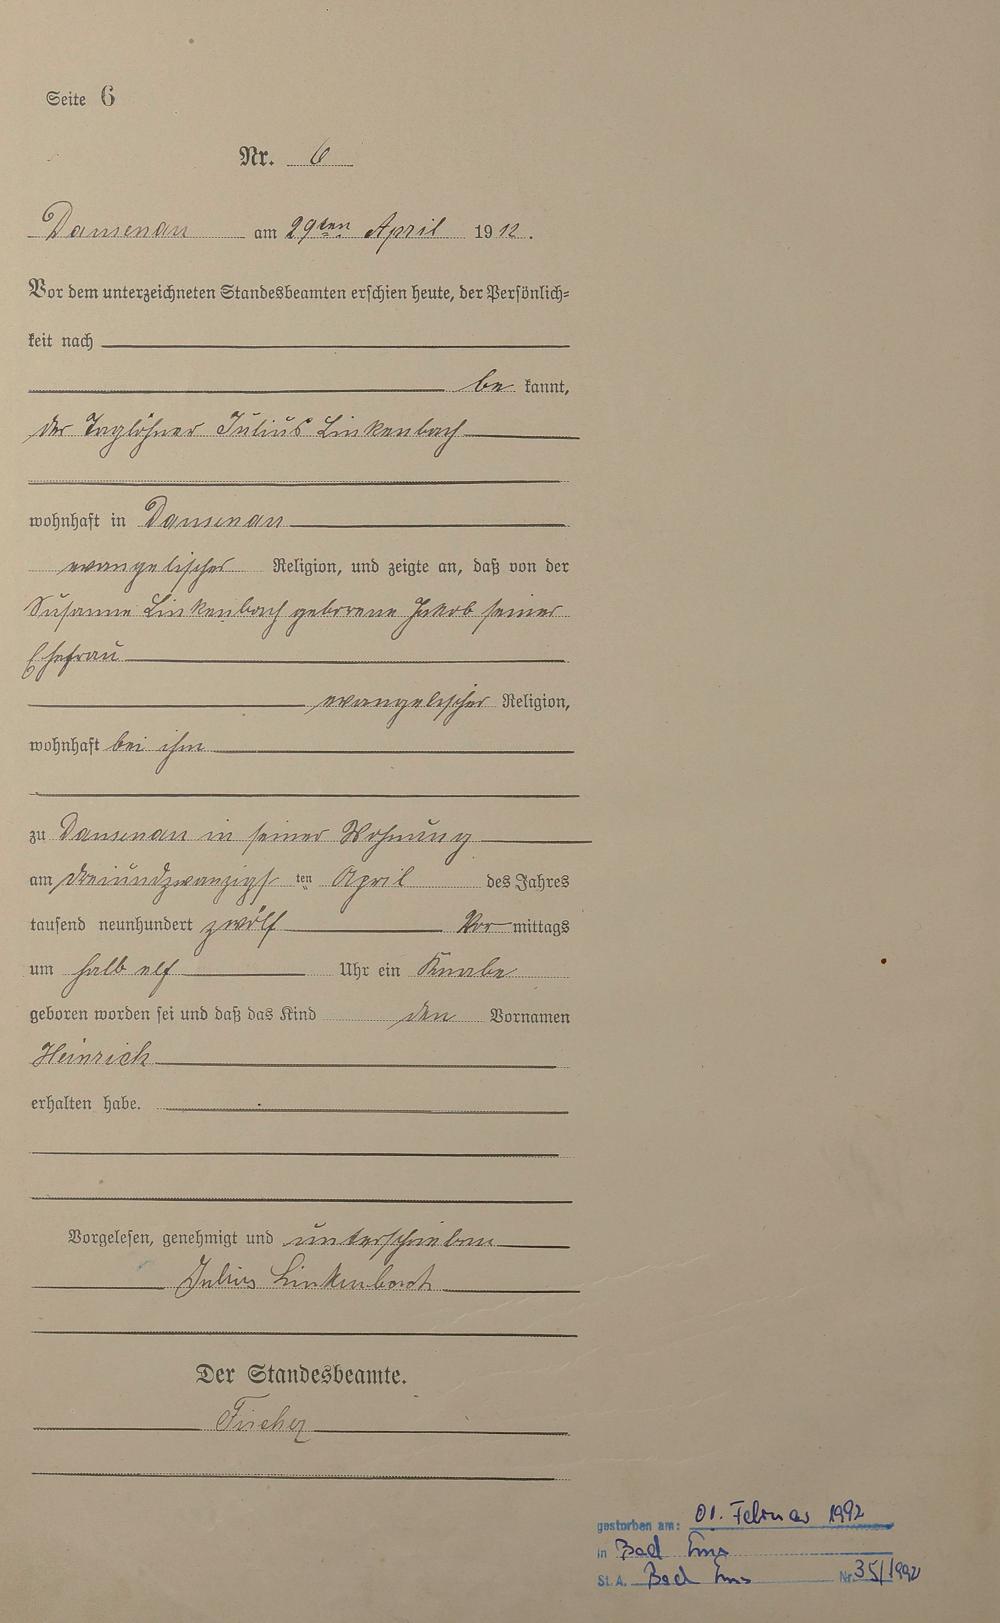 Seite 6
Nr. 6
Dausenau am 29ten April 1912.
Vor dem unterzeichneten Standesbeamten erschien heute, der Persönlich-
keit nach
be kannt,
der Taglöhner Julius Linkenbach
wohnhaft in Dausenau
evangelischer Religion, und zeigte an, daß von der
Susanna Linkenbach geborene Jakob seiner
Ehefrau
evangelischer Religion,
wohnhaft bei ihm
zu Dausenau in seiner Wohnung
am dreiundzwanzigs ten April des Jahres
tausend neunhundert zwölf Vor mittags
um halb elf Uhr ein Knabe
geboren worden sei und daß das Kind den Vornamen
Heinrich
erhalten habe.
Vorgelesen, genehmigt und unterschrieben
Julius Linkenbach
Der Standesbeamte.
Fischer
gestorben am: 01. Februar 1992
in Bad Ems
St.A. Bad Ems Nr. 35/1992